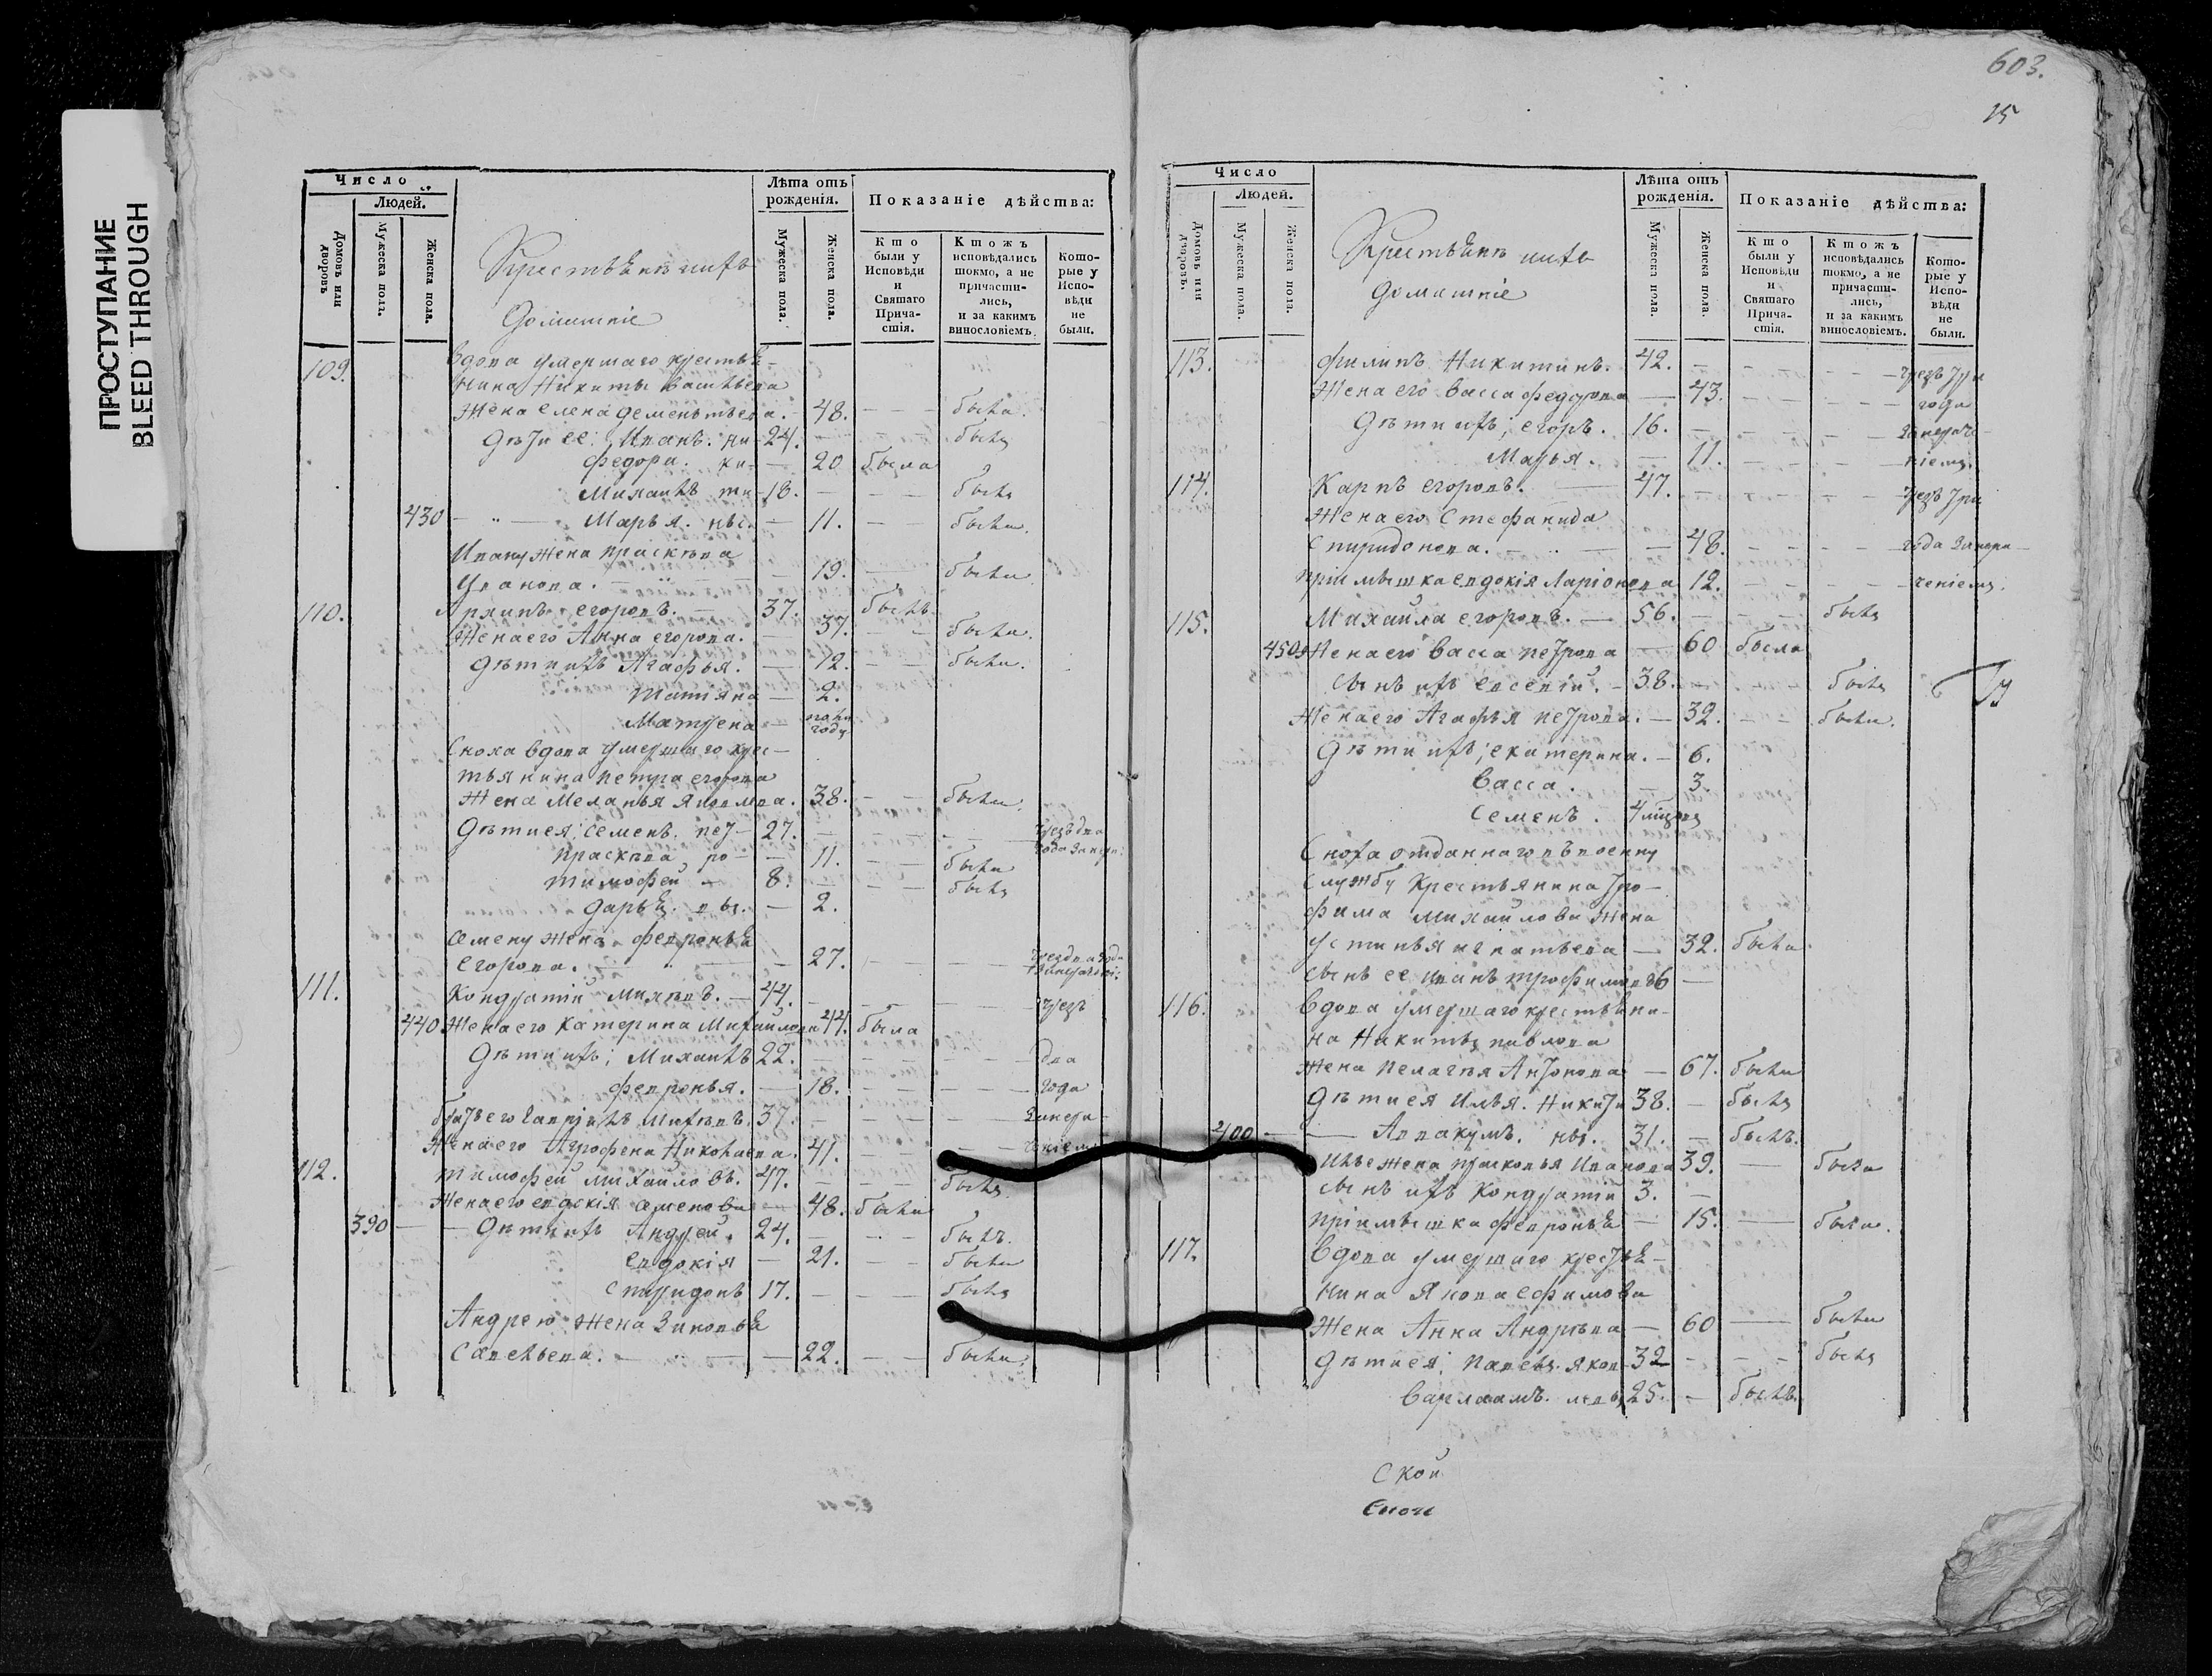 ПРОСТУПАНИЕ
BLEED THROUGH
603.
15
Число
Людей.
Домовъ или дворовъ
Мужеска пола.
Женска пола.
Крестьянъ ихъ
домашніе
Лѣта отъ рожденія.
Мужеска пола.
Женска пола.
Показаніе дѣйства:
Кто были у Исповѣди и Святаго Причастія.
Ктожъ исповѣдались токмо, а не причастились, и за какимъ винословіемъ.
Которые у Исповѣди не были.
109. Вдова умершаго крестья-
нина Никиты Васильева
Жена Елена Дементьева. 48. была.
Дѣти ее: Иванъ. ни- 24. былъ
Федора. ки- 20 была
Михаилъ ти- 18. былъ
430 Марья. ны. 11. была.
Ивану жена Прасковья
Иванова. 19. была
110. Архипъ Егоровъ. 37. былъ
Жена его Анна Егорова. 37. была.
Дѣти ихъ Агафья. 12. была.
Татіяна 2.
Матрена году
Сноха вдова умершаго крес-
тьянина Петра Егорова
Жена Меланья 38. была.
Дѣти ея: Семенъ. пет- 27. чрезъ два года
Прасковья, ро- 11. была
Тимофей 8. былъ
Дарья. вы. 2.
Семену жена Февронья
Егорова. 27. чрез два года
111. Кондратій Михѣевъ. 44. чрезъ
440 Жена его Катерина Михайлова 44. была
Дѣти ихъ; Михаилъ 22. два
Февронья. 18. года
братъ его Гавріилъ Михѣевъ. 37. за нера-
Жена его Агрофена Николаева. 41. ченіемъ
112. Тимофей Михайловъ. 47. былъ
Жена его Евдокія Семенова 48. была
390 Дѣти ихъ Андрей. 24. былъ.
Евдокія 21. была
Спиридонъ 17. былъ
Андрею жена Зиновья
Савельева. 22. была.
Число
Людей.
Домовъ или дворовъ.
Мужеска пола.
Женска пола.
Крестьянъ ихъ
домашніе
Лѣта отъ рожденія.
Мужеска пола.
Женска пола.
Показаніе дѣйства:
Кто были у Исповѣди и Святаго Причастія.
Ктожъ исповѣдались токмо, а не причастились, и за какимъ винословіемъ.
Которые у Исповѣди не были.
113. Филипъ Никитинъ. 42. чрезъ три
Жена его Васса Федорова 43. года
Дѣти ихъ; Егоръ. 16. за нераче-
Марья. 11. ніемъ.
114. Карпъ Егоровъ. 47. чрезъ три
Жена его Стефанида
Спиридонова. 48. года за нера-
Пріимышка Евдокія Ларіонова 12. ченіемъ.
115. Михайла Егоровъ. 56. былъ
450 Жена его Васса Петрова 60 была
Сынъ ихъ Евсевій. 38. былъ
Жена его Агафья Петрова. 32. была.
Дѣти ихъ; Екатерина. 6.
Васса. 3.
Семенъ. 4
Сноха отданнаго въ военну
службу крестьянина Тро-
фима Михайлова жена
Устинья Игнатьева 32. была
Сынъ ее Иванъ Трофимовъ 6
116. Вдова умершаго крестьяни-
на Никиты Павлова
Жена Пелагея Антонова 67. была
Дѣти ея Илья. Ники 38. былъ
400 Аввакумъ. ны. 31. былъ.
Ильѣ жена Прасковья Иванова 39. была
Сынъ ихъ Кондратій 3.
Пріимышка Февронья 15. была.
117. Вдова умершаго крестья-
нина Якова Ефимова
Жена Анна Андрѣева 60 была
Дѣти ея: Павелъ. яков 32 былъ
Варлаамъ. левы 25. былъ.